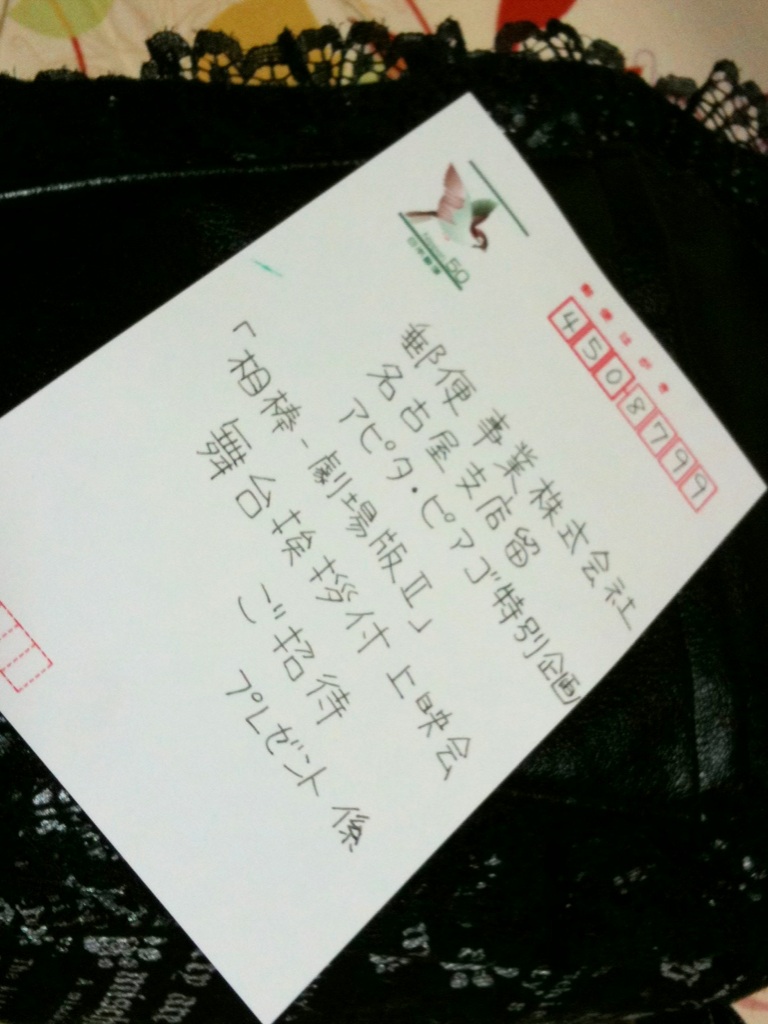 NIPPON 50
日本郵便
郵便はがき
4508799
郵便事業株式会社
名古屋支店留
アピタ・ピアゴ特別企画
「相棒-劇場版Ⅱ」
舞台挨拶付上映会
ご招待
プレゼント係